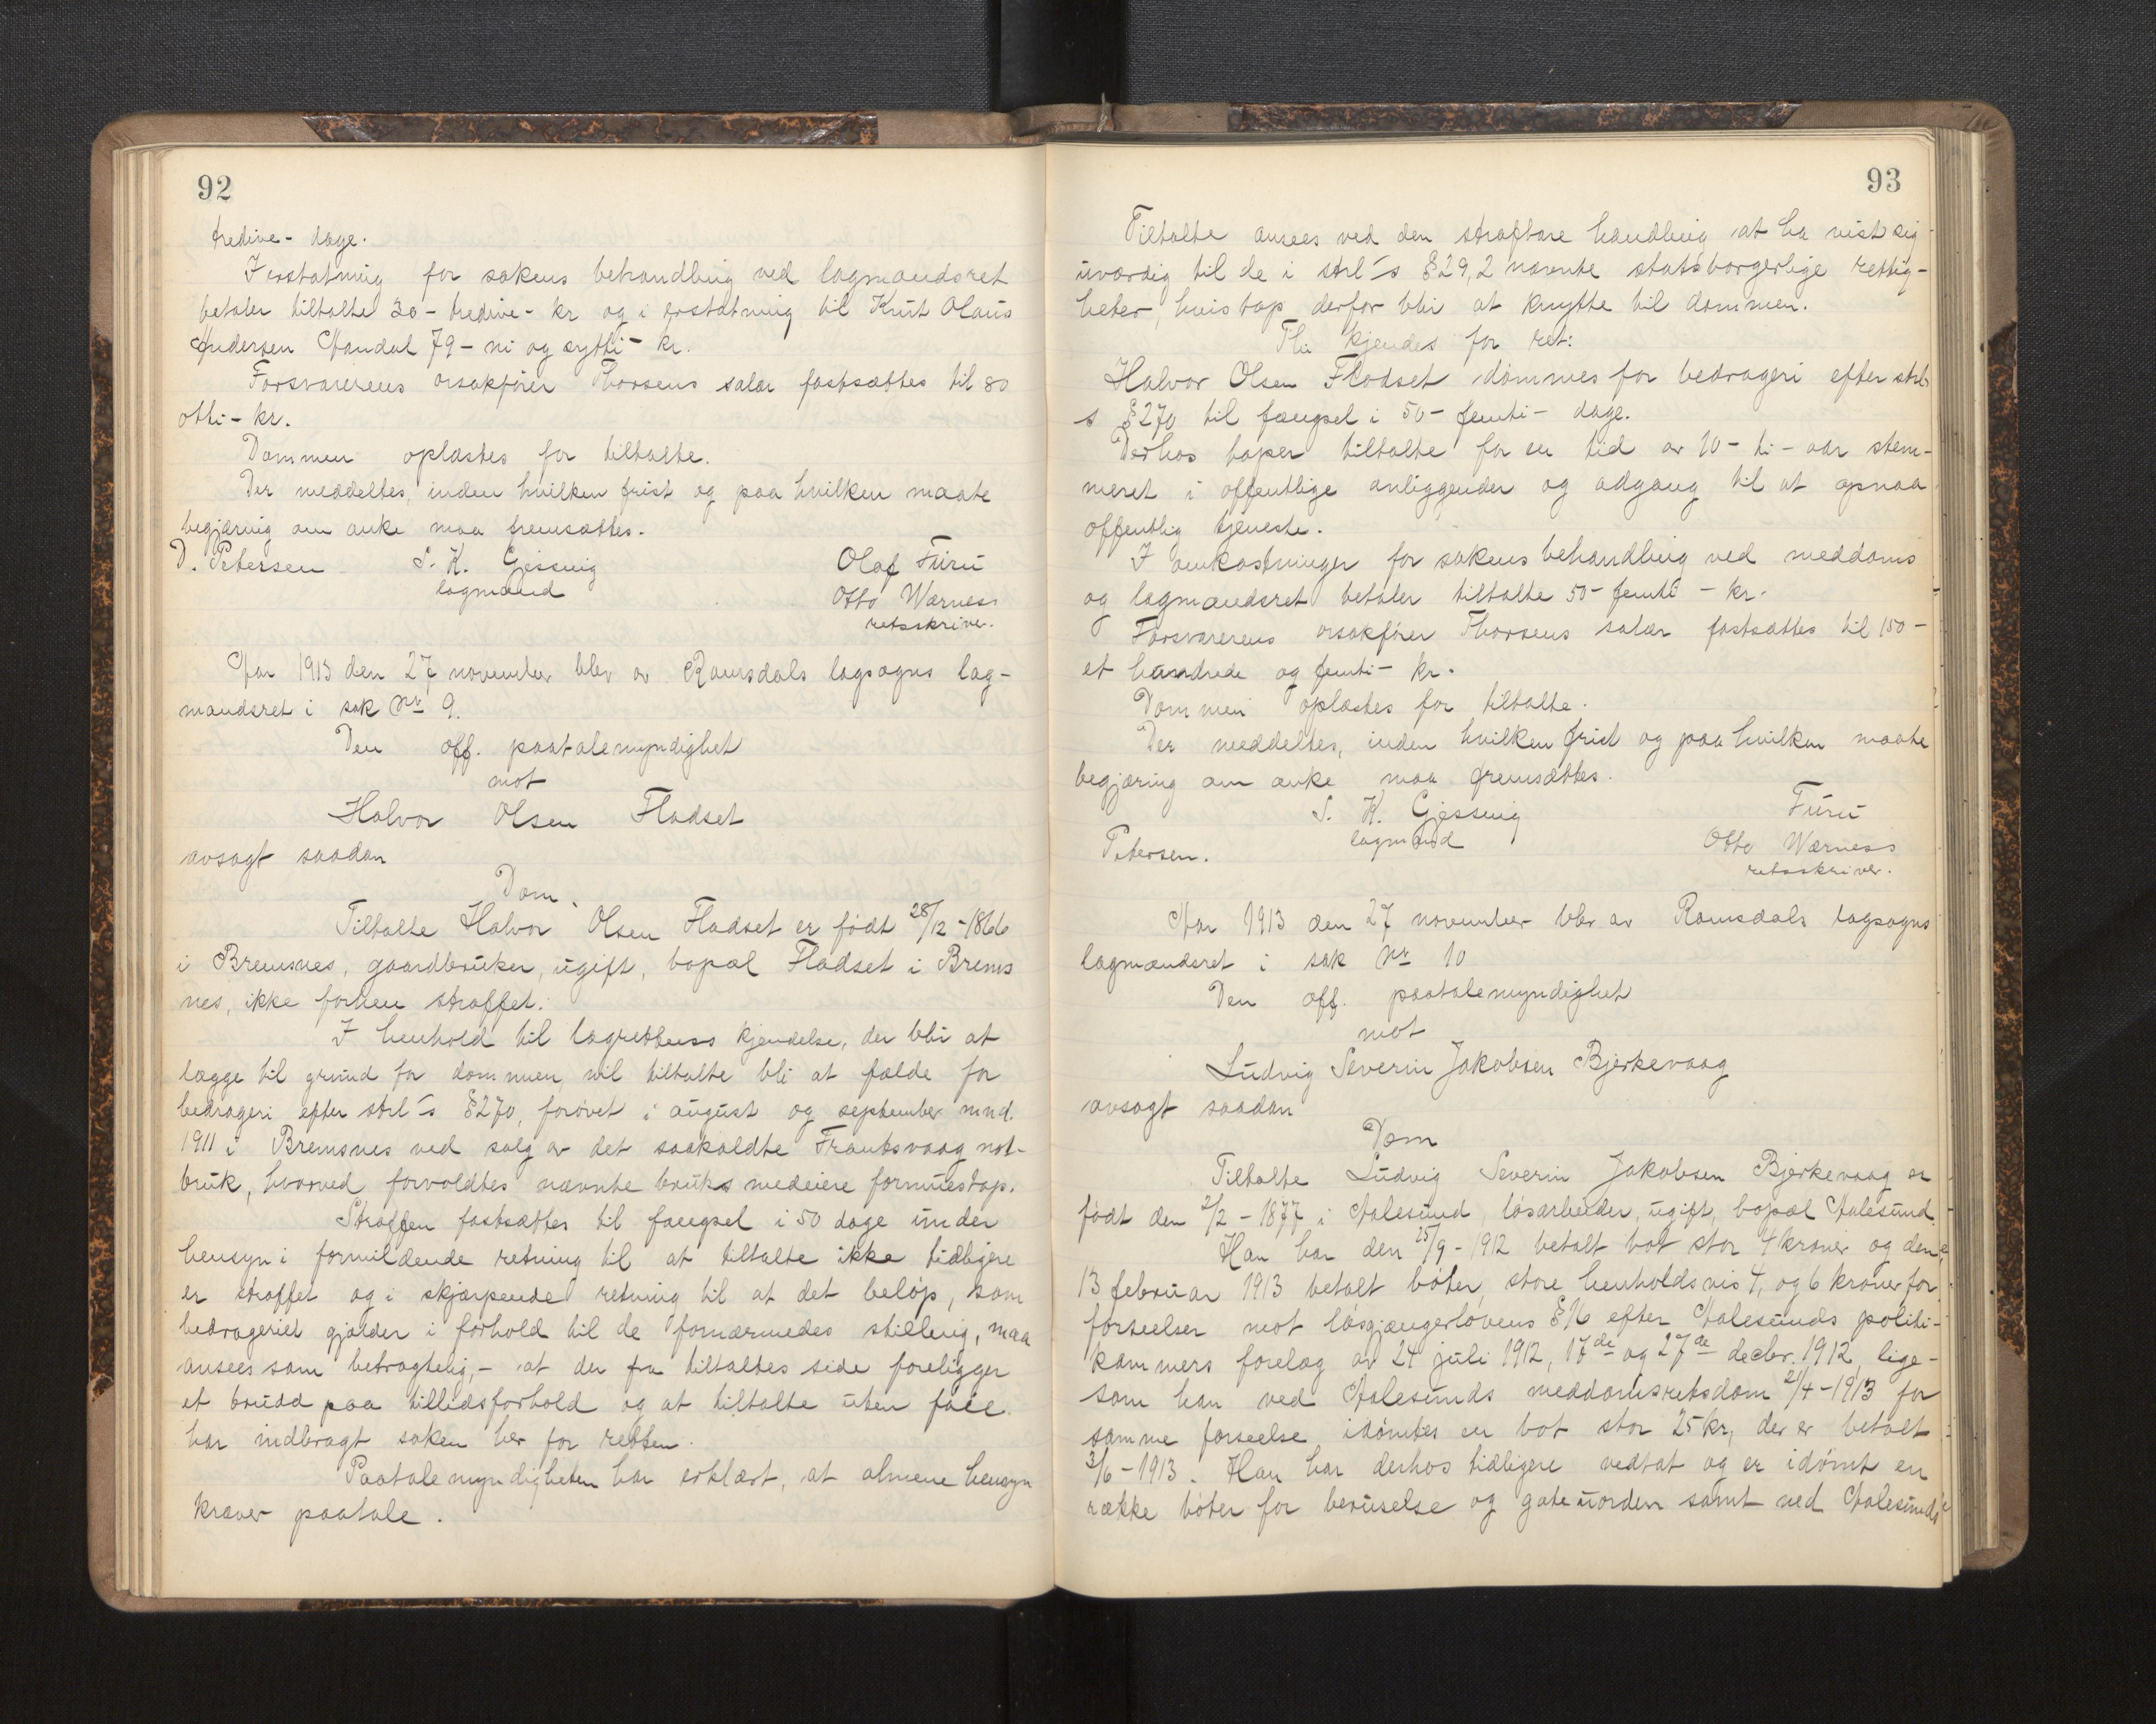 92
tredive - dage.
I erstatning for sakens behandling ved lagmandsret
betaler tiltalte 30 - tredive - kr og i erstatning til Knut Olaus
Andersen Aandal 79 - ni og sytti - kr.
Forsvarerens orsakfører Thorsens salær fastsættes til 80
otti - kr.
Dommen oplæstes for tiltalte.
Der meddeltes, inden hvilken frist og paa hvilken maate
begjæring om anke maa fremsættes.
D. Petersen S. K. Gjessing Olaf Furu
lagmand Otto Wærness
retsskriver.
Aar 1913 den 27 november blev av Romsdals lagsogns lag-
mandsret i sak Nr 9.
Den off. paatalemyndighet
mot
Halvor Olsen Fladset
avsagt saadan
Dom.
Tiltalte Halvor Olsen Fladset er født 28/12 - 1866
i Bremsnes, gaardbruker, ugift, bopæl Fladset i Brems
nes, ikke forhen straffet.
I henhold til lagrettens kjendelse, der blir at
lægge til grund for dommen, vil tiltalte bli at fælde for
bedrageri efter strl-s § 270, forøvet i august og september mnd.
1911 i Bremsnes ved salg av det saakaldte Frantsvaag not-
bruk, hvorved forvoldtes nævnte bruks medeiere formuestap.
Straffen fastsættes til fængsel i 50 dage under
hensyn i formildende retning til at tiltalte ikke tidligere
er straffet og i skjærpende retning til at det beløp, som
bedrageriet gjælder i forhold til de fornærmedes stilling, maa
ansees som betragtelig, - at der fra tiltaltes side foreligger
et brudd paa tillidsforhold og at tiltalte uten føie
har indbragt saken her for retten.
Paatalemyndigheten har erklært, at almene hensyn
kræver paatale.
93
Tiltalte ansees ved den strafbare handling at ha vist sig
uværdig til de i strl-s § 29,2 nævnte statsborgerlige rettig-
heter, hvis tap derfor blir at knytte til dommen.
Thi kjendes for ret:
Halvor Olsen Fladset dømmes for bedrageri efter strl-
s § 270 til fængsel i 50 - femti - dage.
Derhos taper tiltalte for en tid av 10 - ti - aar stem-
meret i offentlige anliggender og adgang til at opnaa
offentlig tjeneste.
I omkostninger for sakens behandling ved meddoms
og lagmandsret betaler tiltalte 50 - femti - kr.
Forsvarerens orsakfører Thorsens salær fastsættes til 150 -
et hundrede og femti - kr.
Dommen oplæstes for tiltalte.
Der meddeltes, inden hvilken frist og paa hvilken maate
begjæring om anke maa fremsættes.
S. K. Gjessing Furu
Petersen. lagmand Otto Wærness
retsskriver.
Aar 1913 den 27 november blev av Romsdals lagsogns
lagmandsret i sak Nr 10
Den off. paatalemyndighet
mot
Ludvig Severin Jakobsen Bjerkevaag
avsagt saadan
Dom
Tiltalte Ludvig Severin Jakobsen Bjerkevaag er
født den 2/2 - 1877 i Aalesund, løsarbeider, ugift, bopæl Aalesund.
Han har den 25/9 - 1912 betalt bot stor 4 kroner og den
13 februar 1913 betalt bøter, store henholdsvis 4, og 6 kroner for
forseelser mot løsgjængerlovens § 16 efter Aalesunds politi-
kammers forelæg av 24 juli 1912, 17de og 27de decbr. 1912, lige-
som han ved Aalesunds meddomsretsdom 21/4 - 1913 for
samme forseelse idømtes en bot stor 25 kr, der er betalt
3/6 - 1913. Han har derhos tidligere vedtat og er idømt en
række bøter for beruselse og gateuorden samt ved Aalesunds